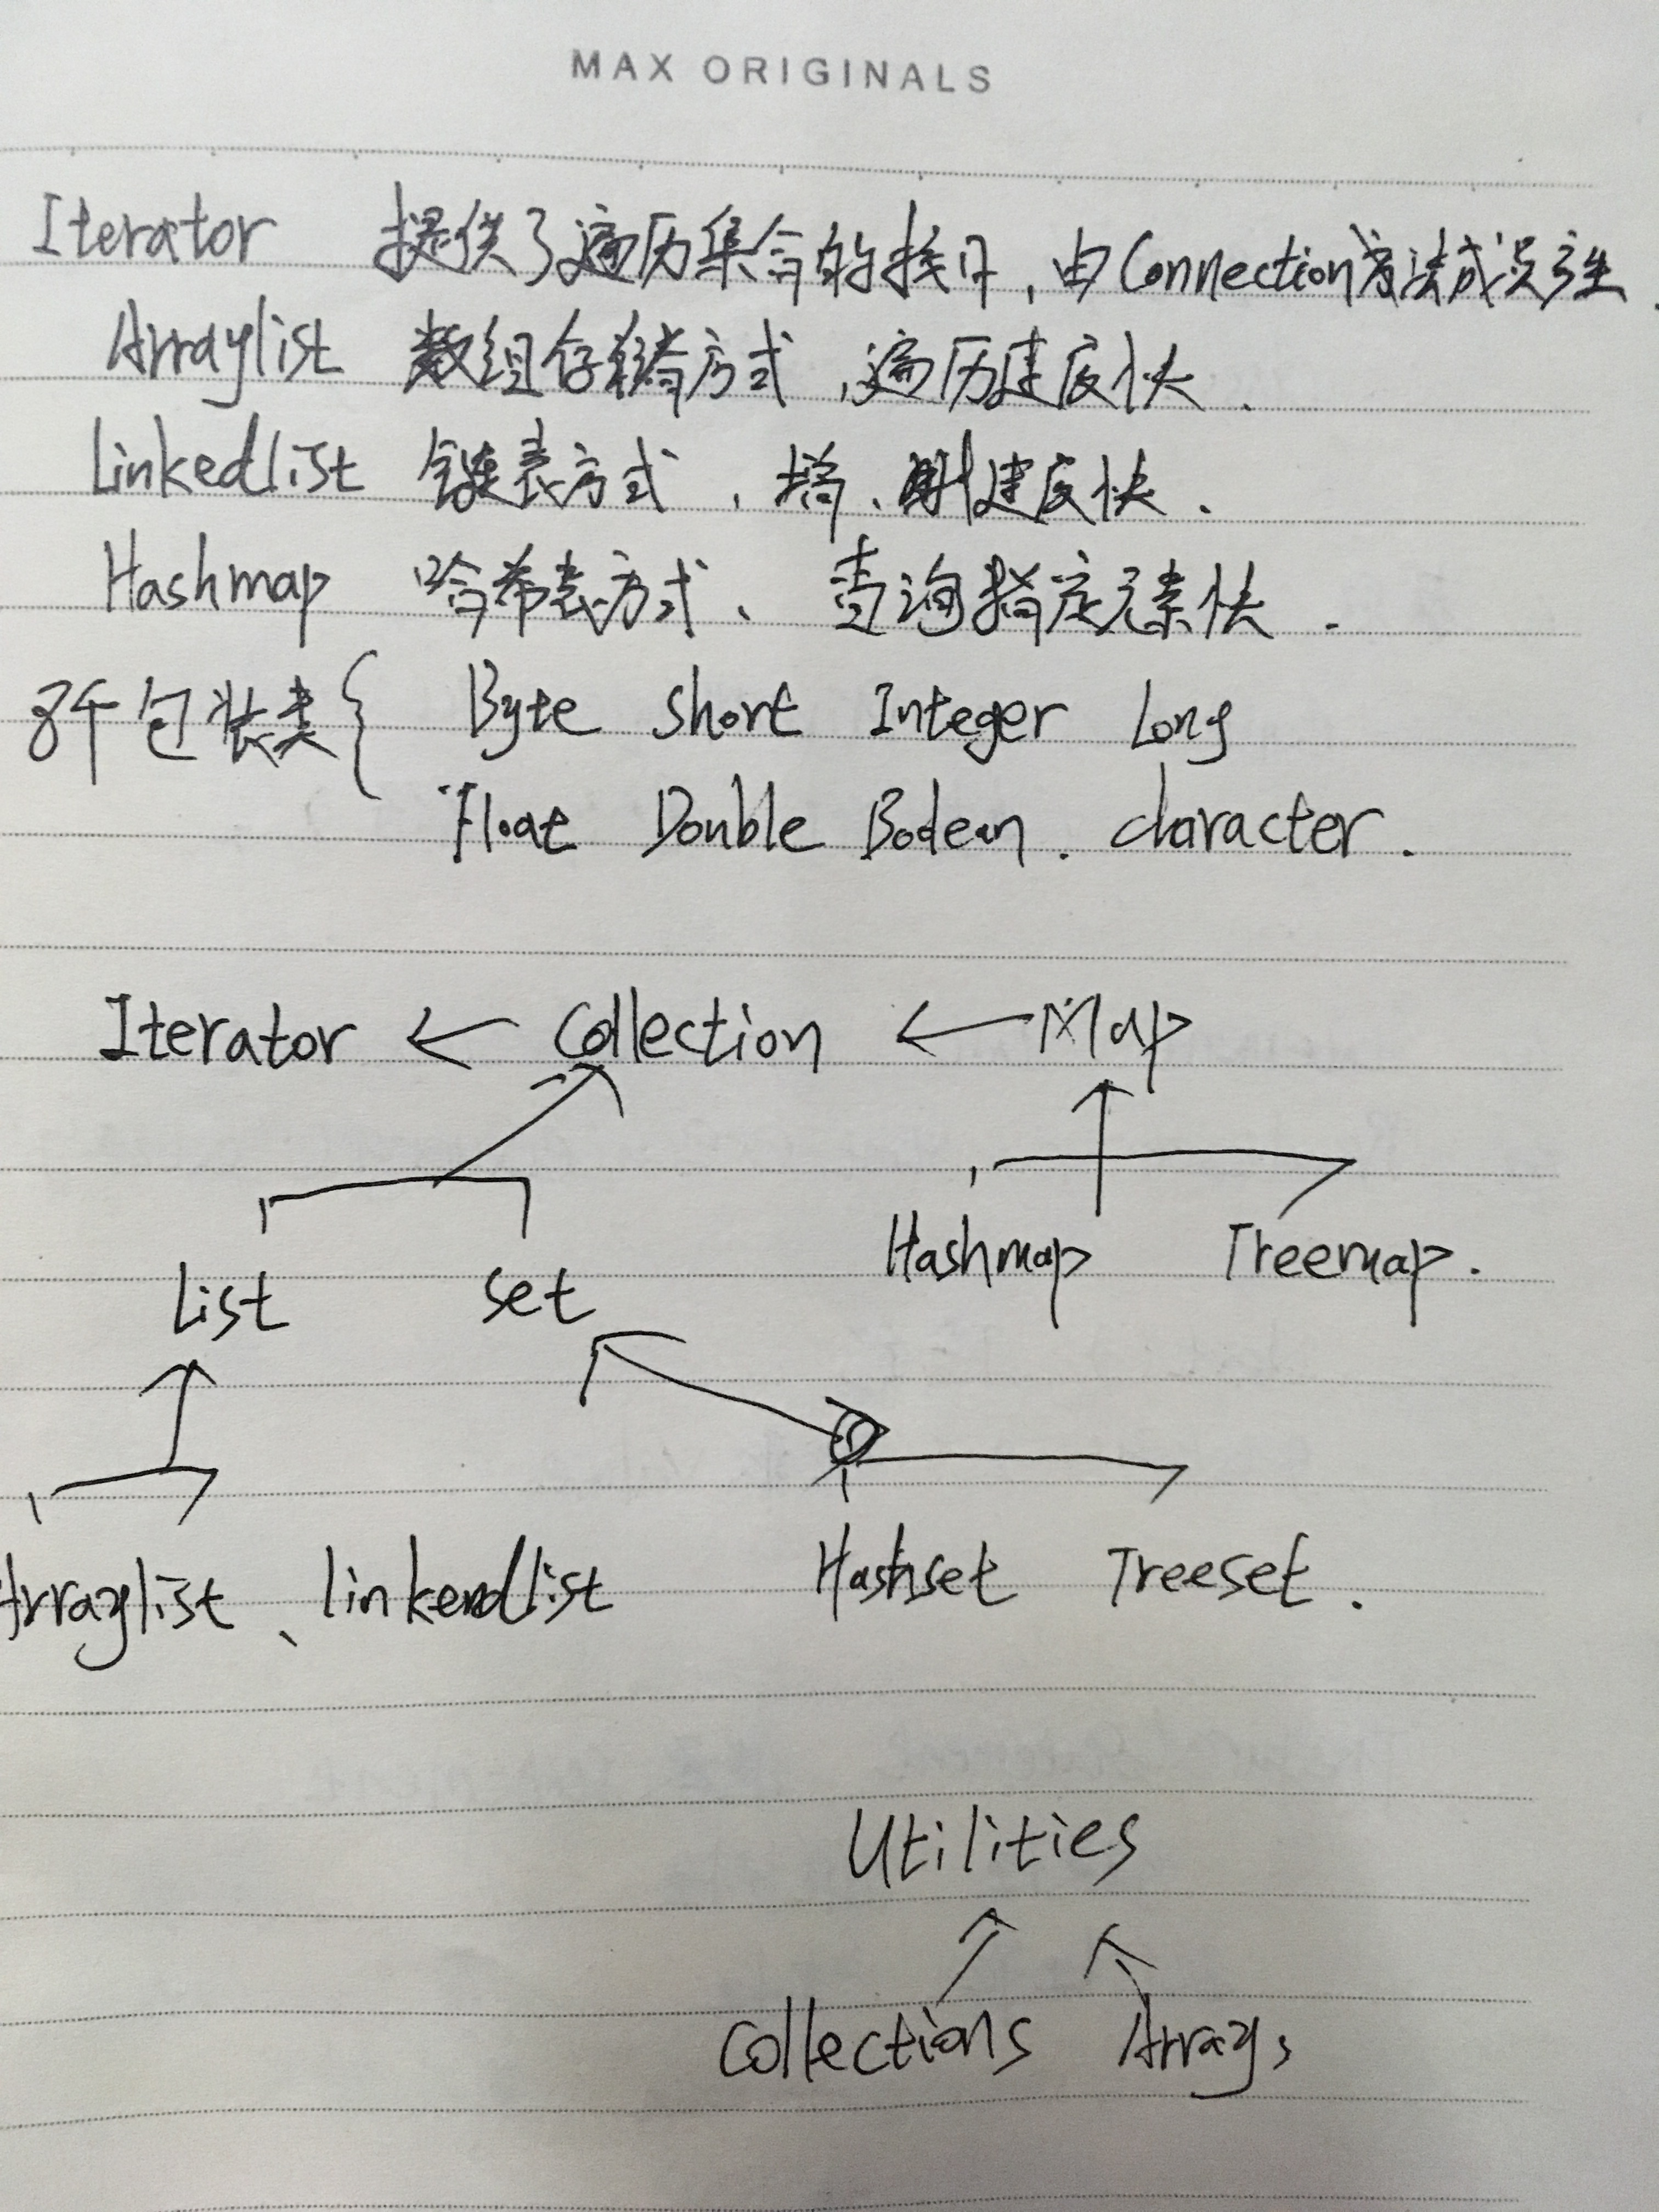 MAX ORIGINALS
Iterator 提供了遍历集合的接口，由Connection方法成员产生.
Arraylist 数组存储方式，遍历速度快.
Linkedlist 链表方式，增、删速度快.
Hashmap 哈希表方式、查询指定元素快.
8个包装类{ Byte short Integer Long
Float Double Boolean. character.
Iterator ← Collection ← Map
Hashmap Treemap.
List set
Arraylist、linkendlist Hashset Treeset.
Utilities
Collections Arrays